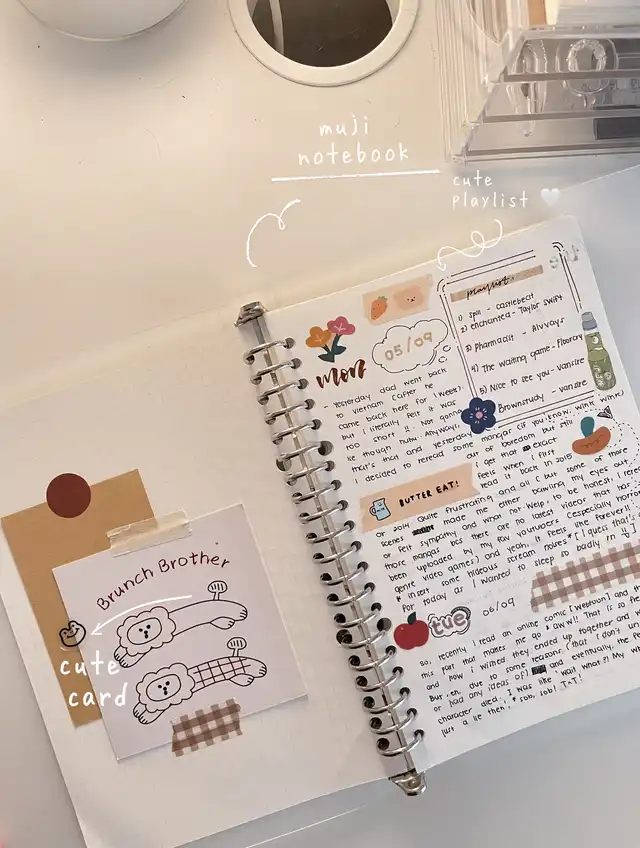 muji
notebook
cute
playlist
playlist:
1) spill - castlebeat
2) enchanted - Taylor swift
3) pharmacist - Alvvays
4) The waiting game -
5) Nice to see you - vansire
Brownstudy - vansire
mon
05/09
- Yesterday dad went back
to vietnam (after he
came back here for 1 week).
but I literally felt it was
too short !! Not gonna
lie though huhu. Anyways,
that's that and yesterday
I decided to reread some mangas (if you know, wink wink)
out of boredom, but still
I get that exact
feels when I first
read it back in 2015
BUTTER EAT!
or 2014. Quite frustrating, and all ( but some of those
scenes made me either bawling my eyes out
or felt sympathy and what not. Welp, to be honest, I
those mangas bcs there are no latest videos that
been uploaded by my fav youtubers (especially
genre video games) and yeah, it feels like forever!!
* insert some hideous scream noises * ( I guess that's
for today as I wanted to sleep so badly rn
tue
06/09
so, recently I read an online comic (webtoon) and
this part that makes me go "aww"!! That is so
and how I wished they ended up together and
due to some reason, (that I don't
or had any ideas of) and eventually, the
character died. I was like "wait what?! My
just a lie then", * sob, sob! TAT!
Brunch Brother
cute
card